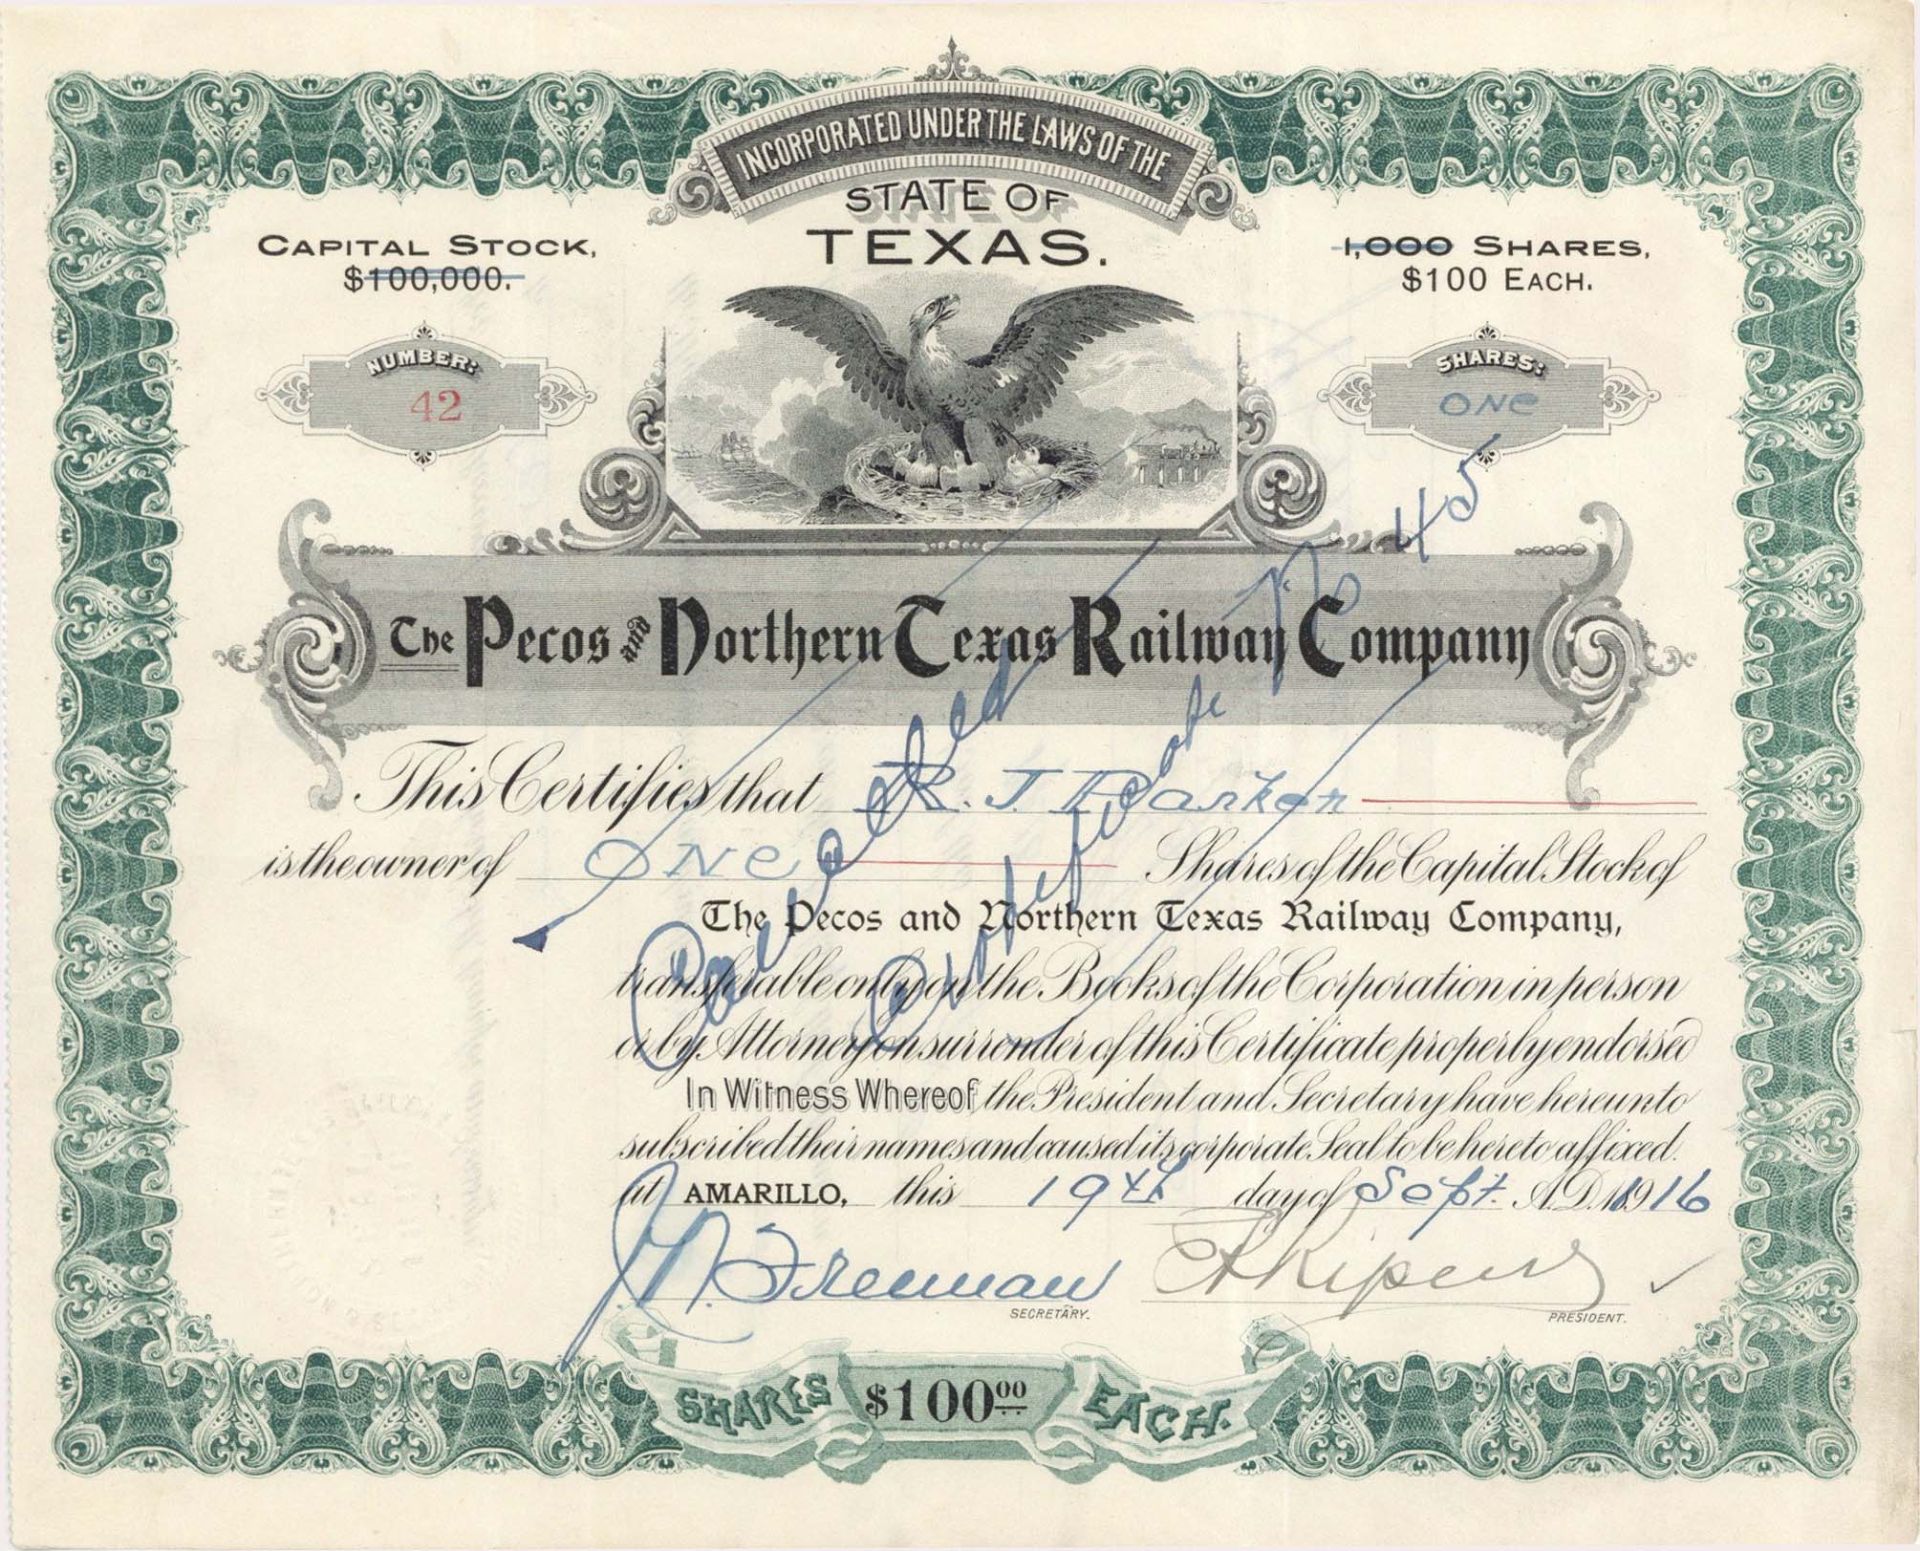 INCORPORATED UNDER THE LAWS OF THE
STATE OF
TEXAS.
CAPITAL STOCK,
$100,000.
1,000 SHARES,
$100 EACH.
NUMBER:
42
SHARES:
ONE
The Pecos and Northern Texas Railway Company
This Certifies that R. J. Parker
is the owner of ONE Shares of the Capital Stock of
The Pecos and Northern Texas Railway Company,
transferable only on the Books of the Corporation in person
or by Attorney on surrender of this Certificate properly endorsed
In Witness Whereof the President and Secretary have hereunto
subscribed their names and caused its corporate Seal to be hereto affixed.
at AMARILLO, this 19th day of Sept. A.D. 1916
Cancelled
Certificate No 45
Freeman
SECRETARY.
PRESIDENT.
SHARES $100.00 EACH.